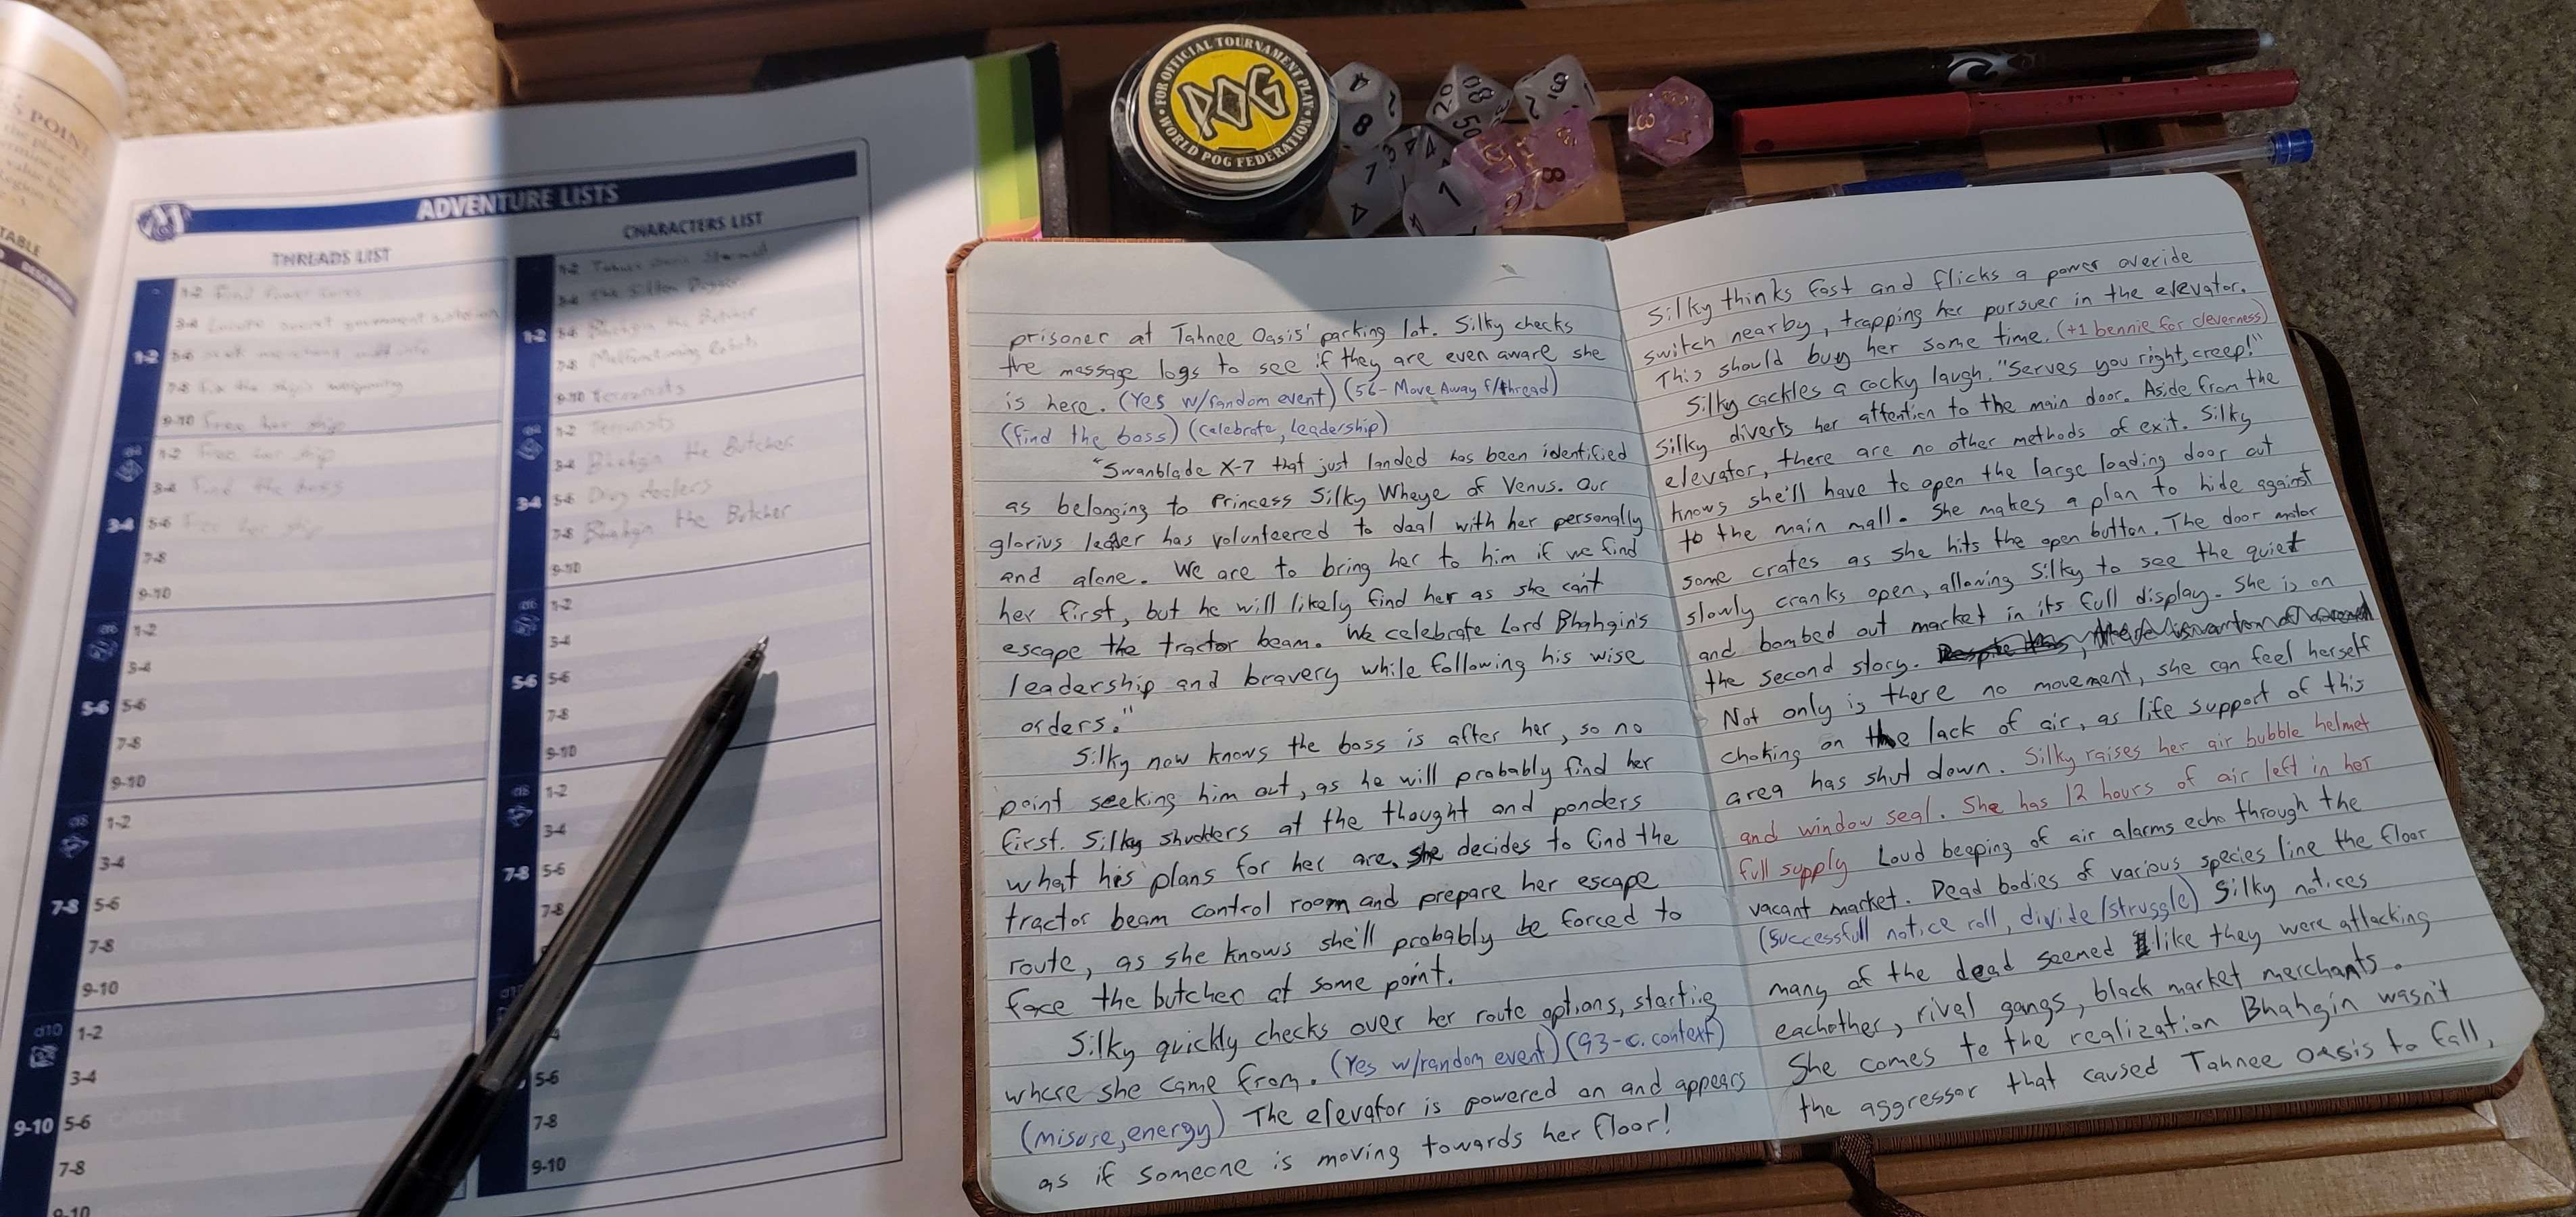 S POIN
TABLE
DESCRIPTION
ADVENTURE LISTS
THREADS LIST
1-2
1-2 Find Power Cores
3-4 Locate secret government
5-6
7-8 Fix the ship's weaponry
9-10 Free her ship
3-4
1-2 Free her ship
3-4 Find the boss
5-6 Free her ship
7-8
9-10
5-6
1-2
3-4
5-6
7-8
9-10
7-8
d8
1-2
3-4
5-6
7-8
9-10
9-10
d10
1-2
3-4
5-6
7-8
9-10
CHARACTERS LIST
1-2
1-2 Tahnee Oasis
3-4 The
5-6 Bhahgin the Butcher
7-8 Malfunctioning Robots
9-10 Terrorists
3-4
1-2 Terrorists
3-4 Bhahgin the Butcher
5-6 Drug dealers
7-8 Bhahgin the Butcher
9-10
5-6
1-2
3-4
5-6
7-8
9-10
7-8
1-2
3-4
5-6
7-8
5-6
7-8
9-10
FOR OFFICIAL TOURNAMENT PLAY
POG
WORLD POG FEDERATION
prisoner at Tahnee Oasis' parking lot. Silky checks
the message logs to see if they are even aware she
is here. (Yes w/random event) (56- Move Away f/thread)
(find the boss) (celebrate, leadership)
"Swanblade X-7 that just landed has been identified
as belonging to Princess Silky Wheye of Venus. Our
glorius leader has volunteered to deal with her personally
and alone. We are to bring her to him if we find
her first, but he will likely find her as she can't
escape the tractor beam. We celebrate Lord Bhahgin's
leadership and bravery while following his wise
orders."
Silky now knows the boss is after her, so no
point seeking him out, as he will probably find her
first. Silky shudders at the thought and ponders
what his plans for her are. She decides to find the
tractor beam control room and prepare her escape
route, as she knows she'll probably be forced to
face the butcher at some point.
Silky quickly checks over her route options, starting
where she came from. (Yes w/random event) (93-c. context)
(misuse, energy) The elevator is powered on and appears
as if someone is moving towards her floor!
Silky thinks fast and flicks a power overide
switch nearby, trapping her pursuer in the elevator.
This should buy her some time. (+1 bennie for cleverness)
Silky cackles a cocky laugh. "Serves you right, creep!"
Silky diverts her attention to the main door. Aside from the
elevator, there are no other methods of exit. Silky
knows she'll have to open the large loading door out
to the main mall. She makes a plan to hide against
some crates as she hits the open button. The door motor
slowly cranks open, allowing Silky to see the quiet
and bombed out market in its full display. She is on
the second story.
Not only is there no movement, she can feel herself
choking on the lack of air, as life support of this
area has shut down. Silky raises her air bubble helmet
and window seal. She has 12 hours of air left in her
full supply Loud beeping of air alarms echo through the
vacant market. Dead bodies of various species line the floor
(successfull notice roll, divide/struggle) Silky notices
many of the dead seemed like they were attacking
eachother, rival gangs, black market merchants.
She comes to the realization Bhahgin wasn't
the aggressor that caused Tahnee Oasis to fall,